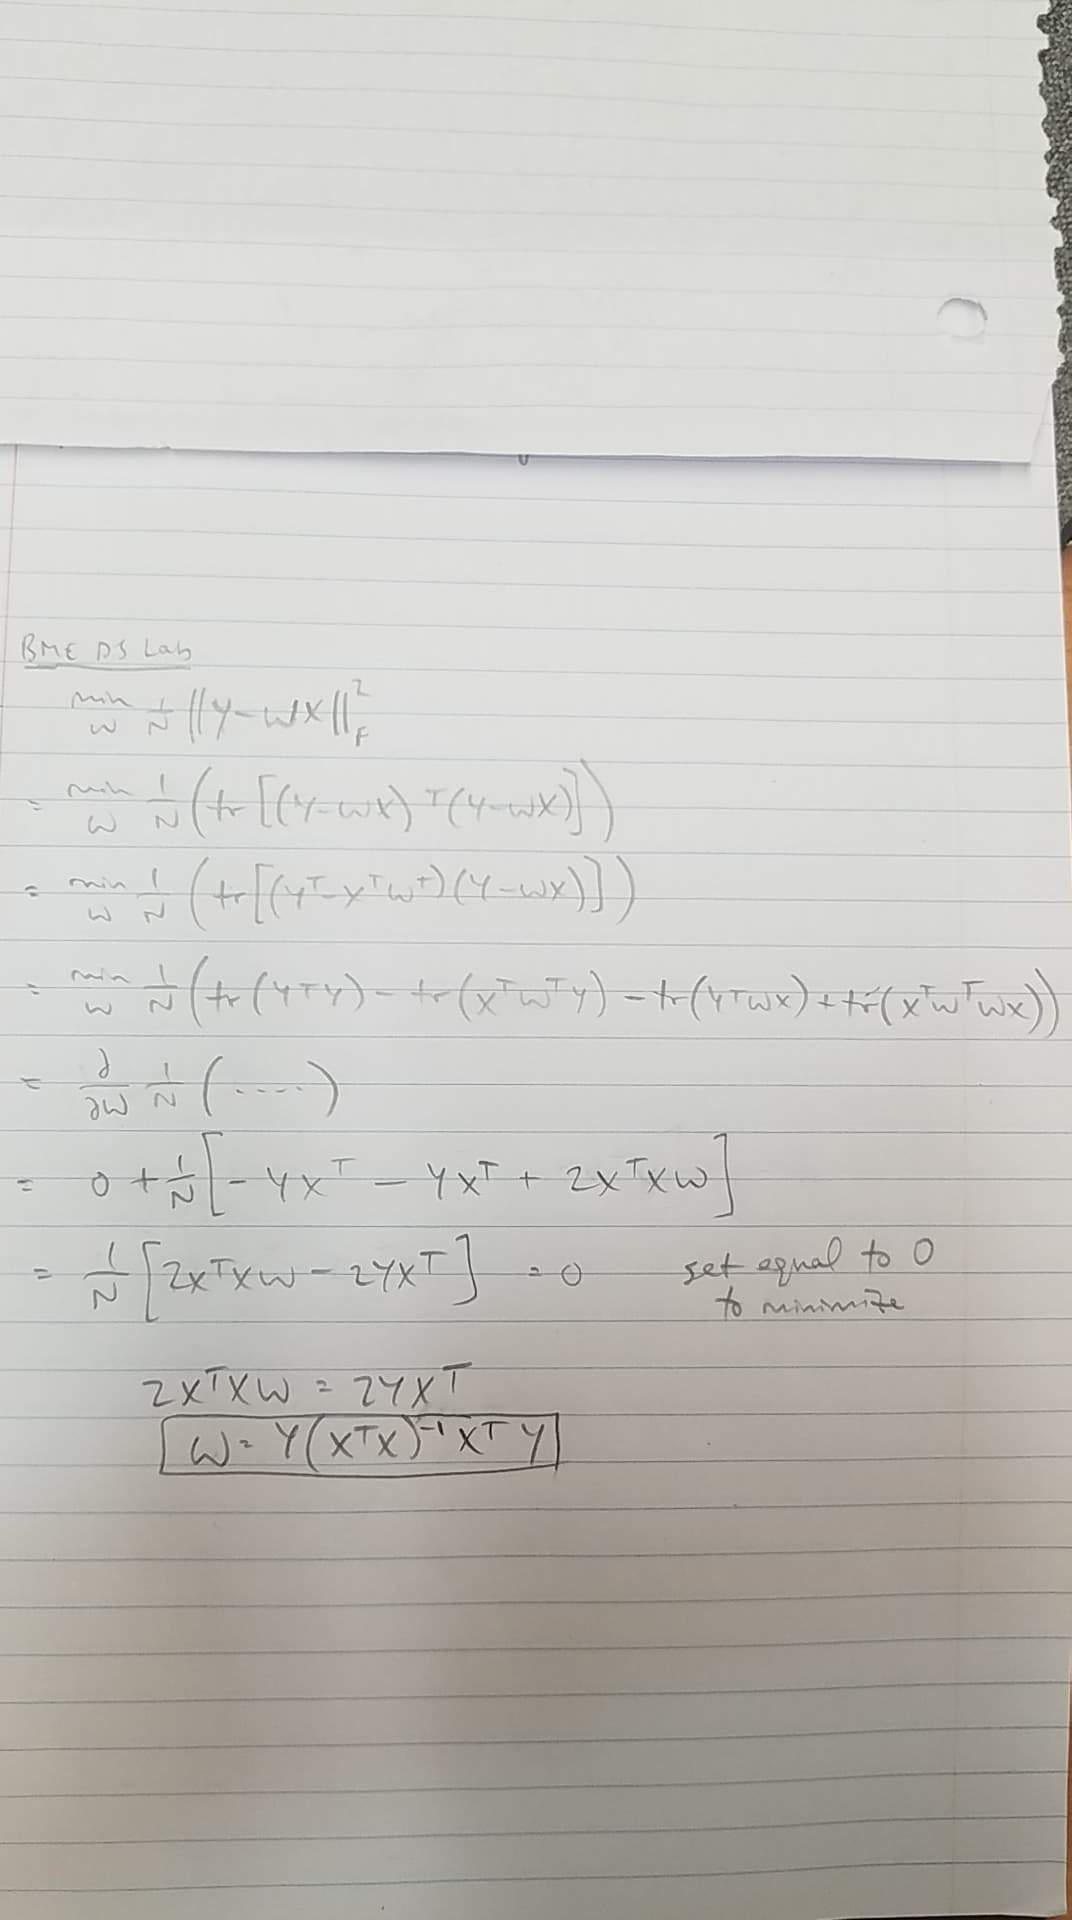 BME DS Lab
min_W 1/N ||Y-WX||²_F
= min_W 1/N (tr[(Y-WX)ᵀ(Y-WX)])
= min_W 1/N (tr[(Yᵀ-XᵀWᵀ)(Y-WX)])
= min_W 1/N (tr(YᵀY) - tr(XᵀWᵀY) - tr(YᵀWX) + tr(XᵀWᵀWX))
= ∂/∂W 1/N (....)
= 0 + 1/N [-YXᵀ - YXᵀ + 2XᵀXW]
= 1/N [2XᵀXW - 2YXᵀ] = 0 set equal to 0
to minimize
2XᵀXW = 2YXᵀ
W = Y(XᵀX)⁻¹XᵀY